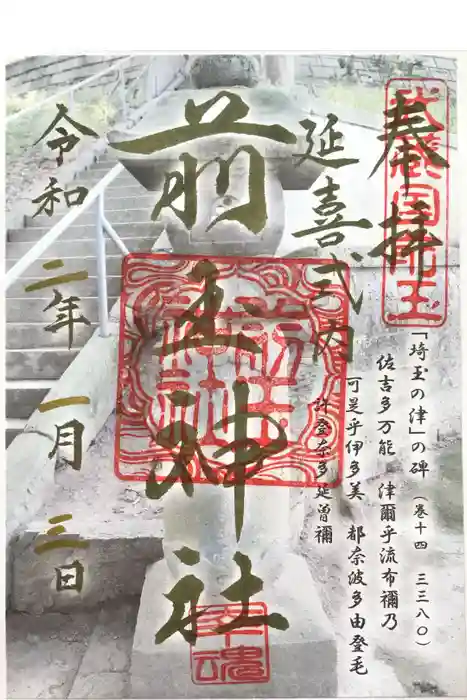 奉拝
武蔵国埼玉
「埼玉の津」の碑（巻十四 三三八〇）
佐吉多万能 津爾乎流布禰乃
可是乎伊多美 都奈波多由登毛
許登奈多延曽禰
延喜式内
前玉神社
前玉神社
幸魂
令和二年一月三日